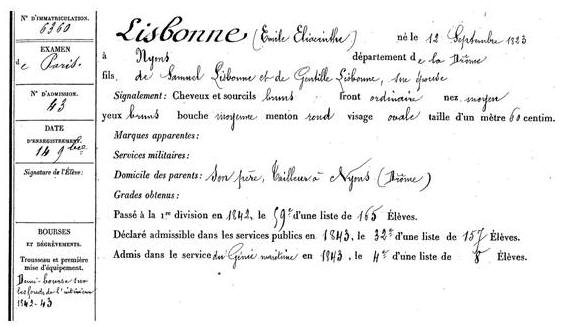 N° D'IMMATRICULATION.
6360
EXAMEN
de Paris.
N° D'ADMISSION.
43
DATE
D'ENREGISTREMENT.
14 9bre
Signature de l'Élève:
BOURSES
ET DÉGRÈVEMENTS.
Trousseau et première
mise d'équipement.
Demi-bourse sur
les fonds de l'intérieur
1842-43
Lisbonne (Emile Eliacinthe) né le 12 Septembre 1823
à Nyons département de la Drôme
fils de Samuel Lisbonne et de Gentille Lisbonne, son épouse
Signalement: Cheveux et sourcils bruns front ordinaire nez moyen
yeux bruns bouche moyenne menton rond visage ovale taille d'un mètre 60 centim.
Marques apparentes:
Services militaires:
Domicile des parents: Son père, tailleur à Nyons (Drôme)
Grades obtenus:
Passé à la 1re division en 1842, le 59e d'une liste de 165 Élèves.
Déclaré admissible dans les services publics en 1843, le 32e d'une liste de 157 Élèves.
Admis dans le service du Génie maritime en 1843, le 4e d'une liste de 8 Élèves.